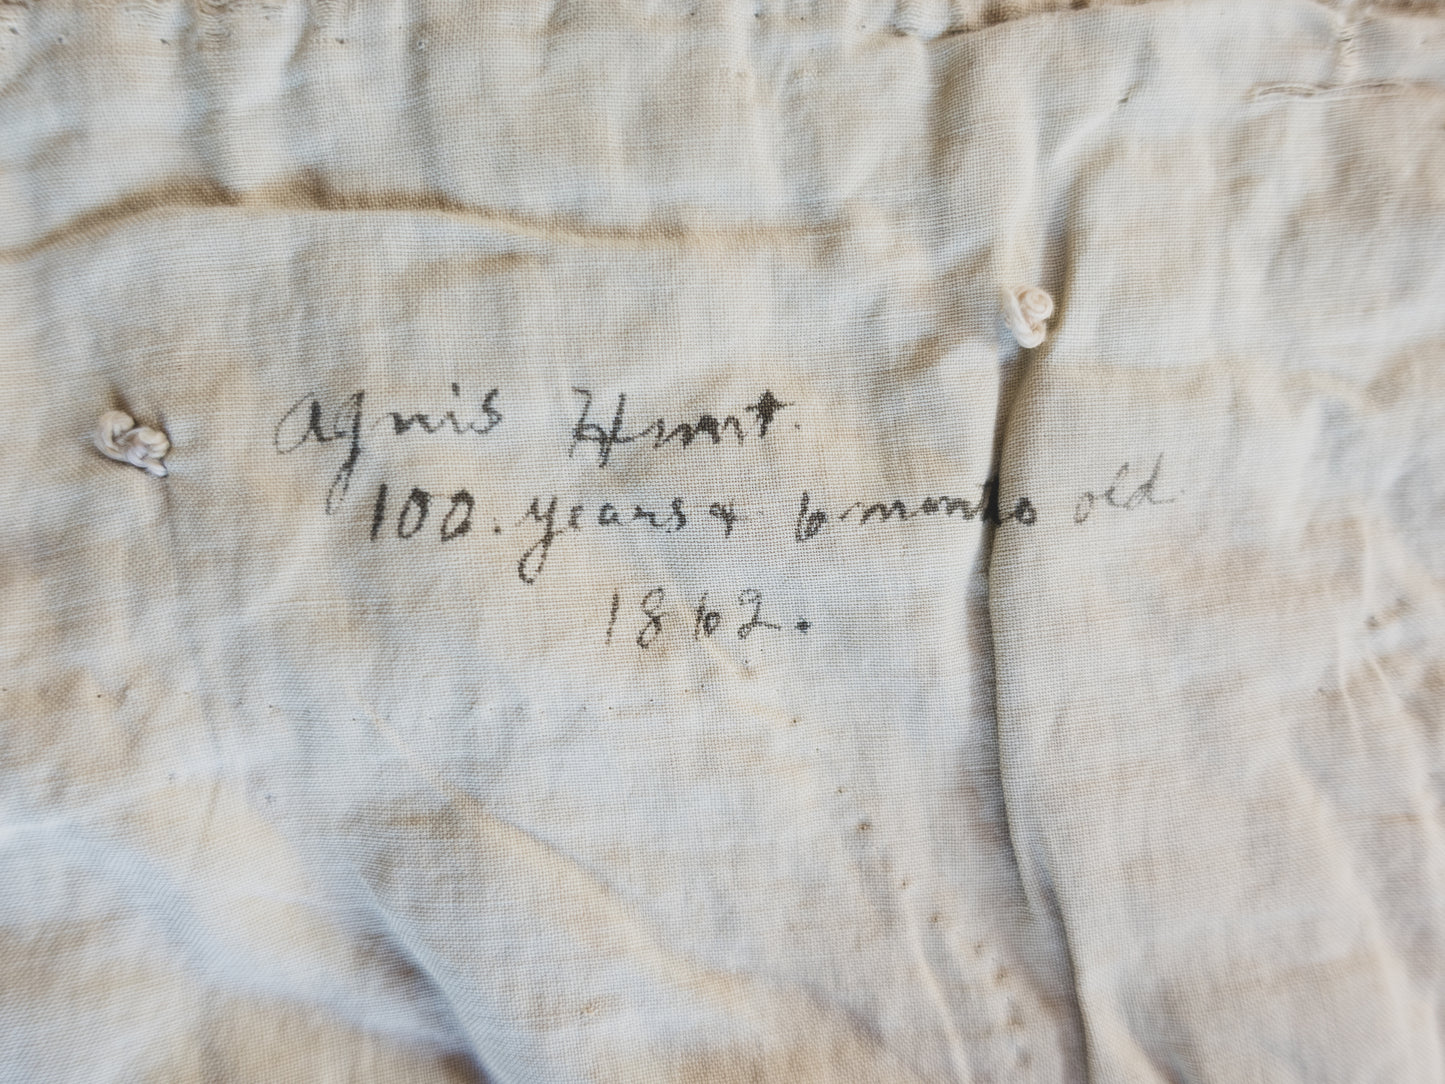 Agnis Hunt.
100. years & 6 months old
1862.